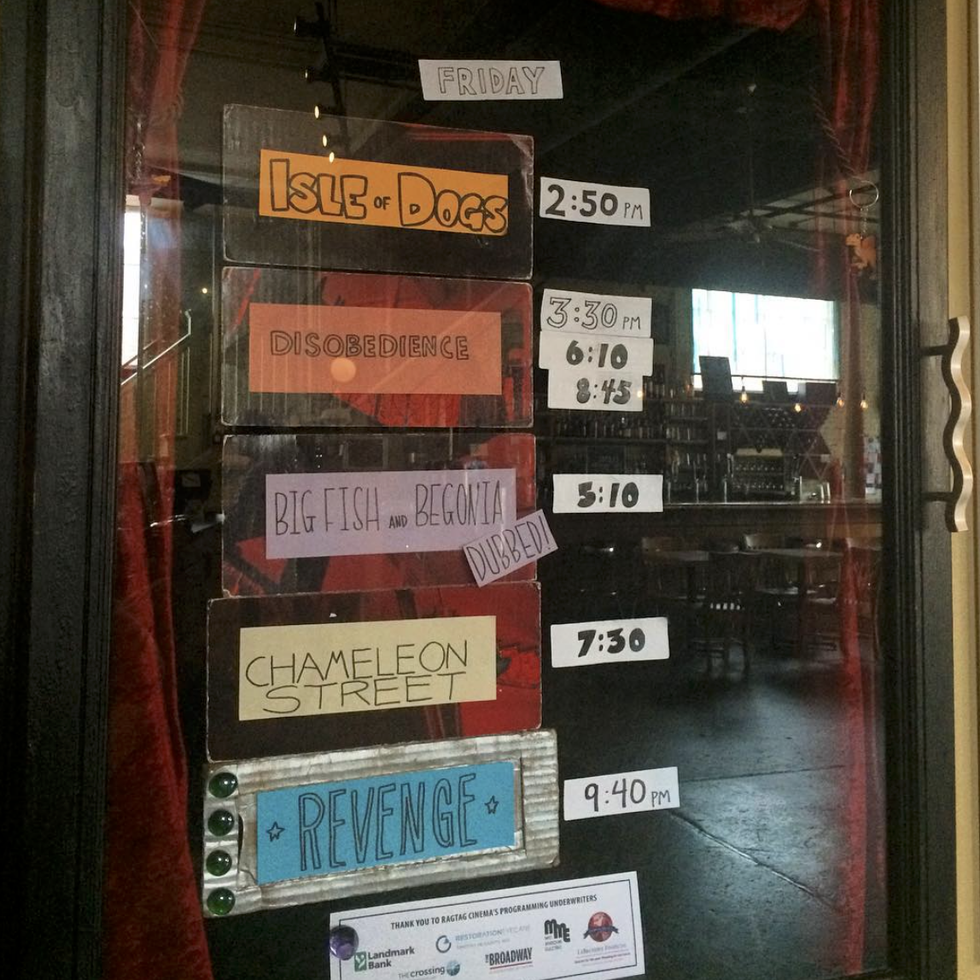 FRIDAY
ISLE OF DOGS
2:50 PM
DISOBEDIENCE
3:30 PM
6:10
8:45
BIG FISH AND BEGONIA
DUBBED!
5:10
CHAMELEON
STREET
7:30
REVENGE
9:40 PM
THANK YOU TO RAGTAG CINEMA'S PROGRAMMING UNDERWRITERS
Landmark
Bank
RESTORATION EYECARE
THE BROADWAY
the crossing